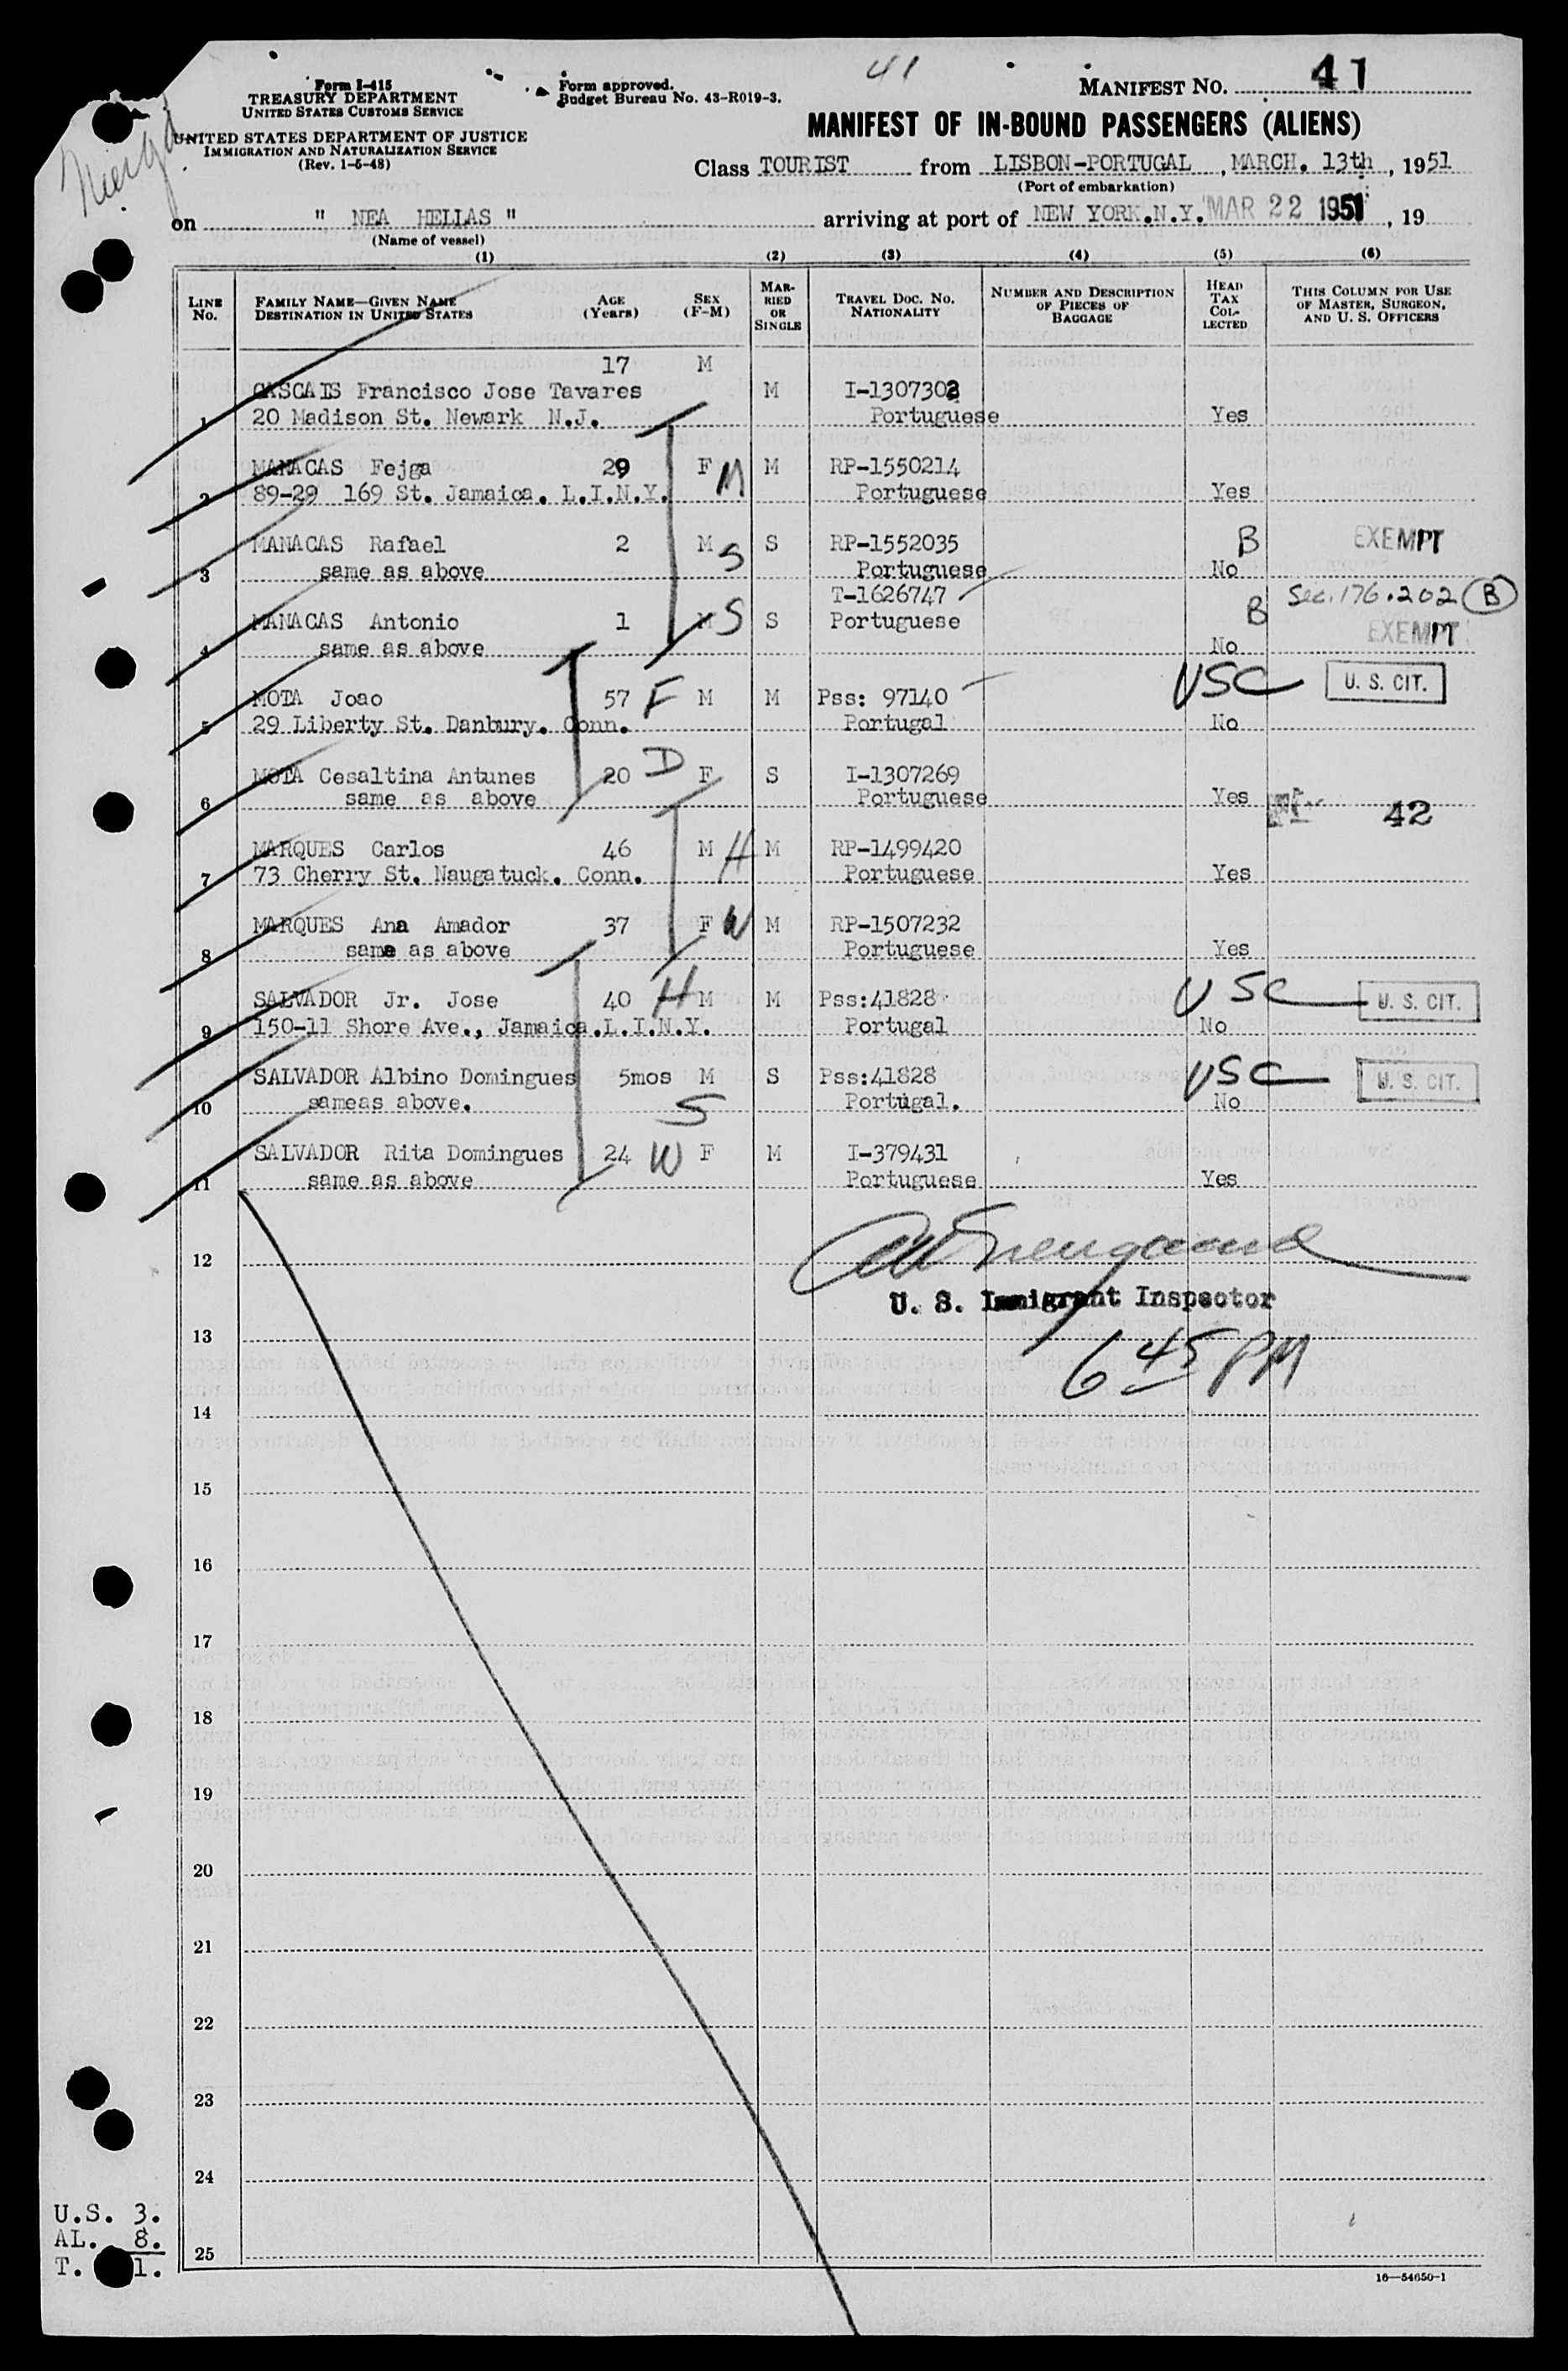 41
MANIFEST NO. 41
Form I-415
TREASURY DEPARTMENT
UNITED STATES CUSTOMS SERVICE
Form approved.
Budget Bureau No. 43-R019-3.
UNITED STATES DEPARTMENT OF JUSTICE
IMMIGRATION AND NATURALIZATION SERVICE
(Rev. 1-5-48)
MANIFEST OF IN-BOUND PASSENGERS (ALIENS)
Class TOURIST from LISBON-PORTUGAL, MARCH. 13th, 1951
(Port of embarkation)
on " NEA HELLAS " arriving at port of NEW YORK.N.Y. MAR 22 1951, 19
(Name of vessel)
(1) (2) (3) (4) (5) (6)
LINE No. FAMILY NAME—GIVEN NAME DESTINATION IN UNITED STATES AGE (Years) SEX (F-M) MARRIED OR SINGLE TRAVEL DOC. NO. NATIONALITY NUMBER AND DESCRIPTION OF PIECES OF BAGGAGE HEAD TAX COLLECTED THIS COLUMN FOR USE OF MASTER, SURGEON, AND U. S. OFFICERS
17 M
CASCAIS Francisco Jose Tavares M I-1307302
1 20 Madison St. Newark N.J. Portuguese Yes
MANACAS Fejga 29 F M M RP-1550214
2 89-29 169 St. Jamaica. L.I.N.Y. Portuguese Yes
MANACAS Rafael 2 M S S RP-1552035 B EXEMPT
3 same as above Portuguese No
T-1626747 Sec. 176.202 (B)
MANACAS Antonio 1 M S S Portuguese B EXEMPT
4 same as above No
MOTA Joao 57 F M M Pss: 97140 USC U. S. CIT.
5 29 Liberty St. Danbury. Conn. Portugal No
MOTA Cesaltina Antunes 20 D F S I-1307269
6 same as above Portuguese Yes 42
MARQUES Carlos 46 M H M RP-1499420
7 73 Cherry St. Naugatuck. Conn. Portuguese Yes
MARQUES Ana Amador 37 F W M RP-1507232
8 same as above Portuguese Yes
SALVADOR Jr. Jose 40 H M M Pss:41828 USC U. S. CIT.
9 150-11 Shore Ave., Jamaica.L.I.N.Y. Portugal No
SALVADOR Albino Domingues 5mos M S Pss:41828 USC U. S. CIT.
10 sameas above. S Portugal. No
SALVADOR Rita Domingues 24 W F M I-379431
11 same as above Portuguese Yes
12
U. S. Immigrant Inspector
13
6 45 PM
14
15
16
17
18
19
20
21
22
23
24
25
U.S. 3.
AL. 8.
T. 1.
16—54650-1